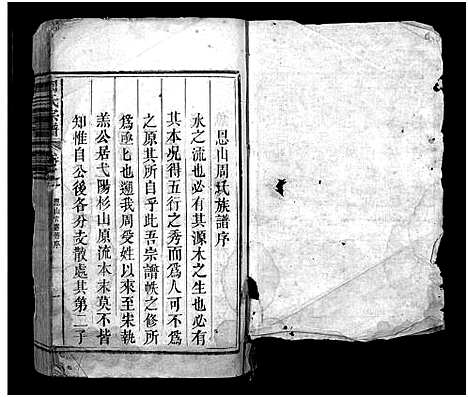 恩山周氏族譜序
水之流也必有其源木之生也必有
其本況得五行之秀而為人可不為
之原其所自乎此吾宗譜帙之修所
為亟也遡我周受姓以來至宋執
羔公居弋陽杉山原流本末莫不皆
知惟自公後各分支散處其第二子
周氏宗譜